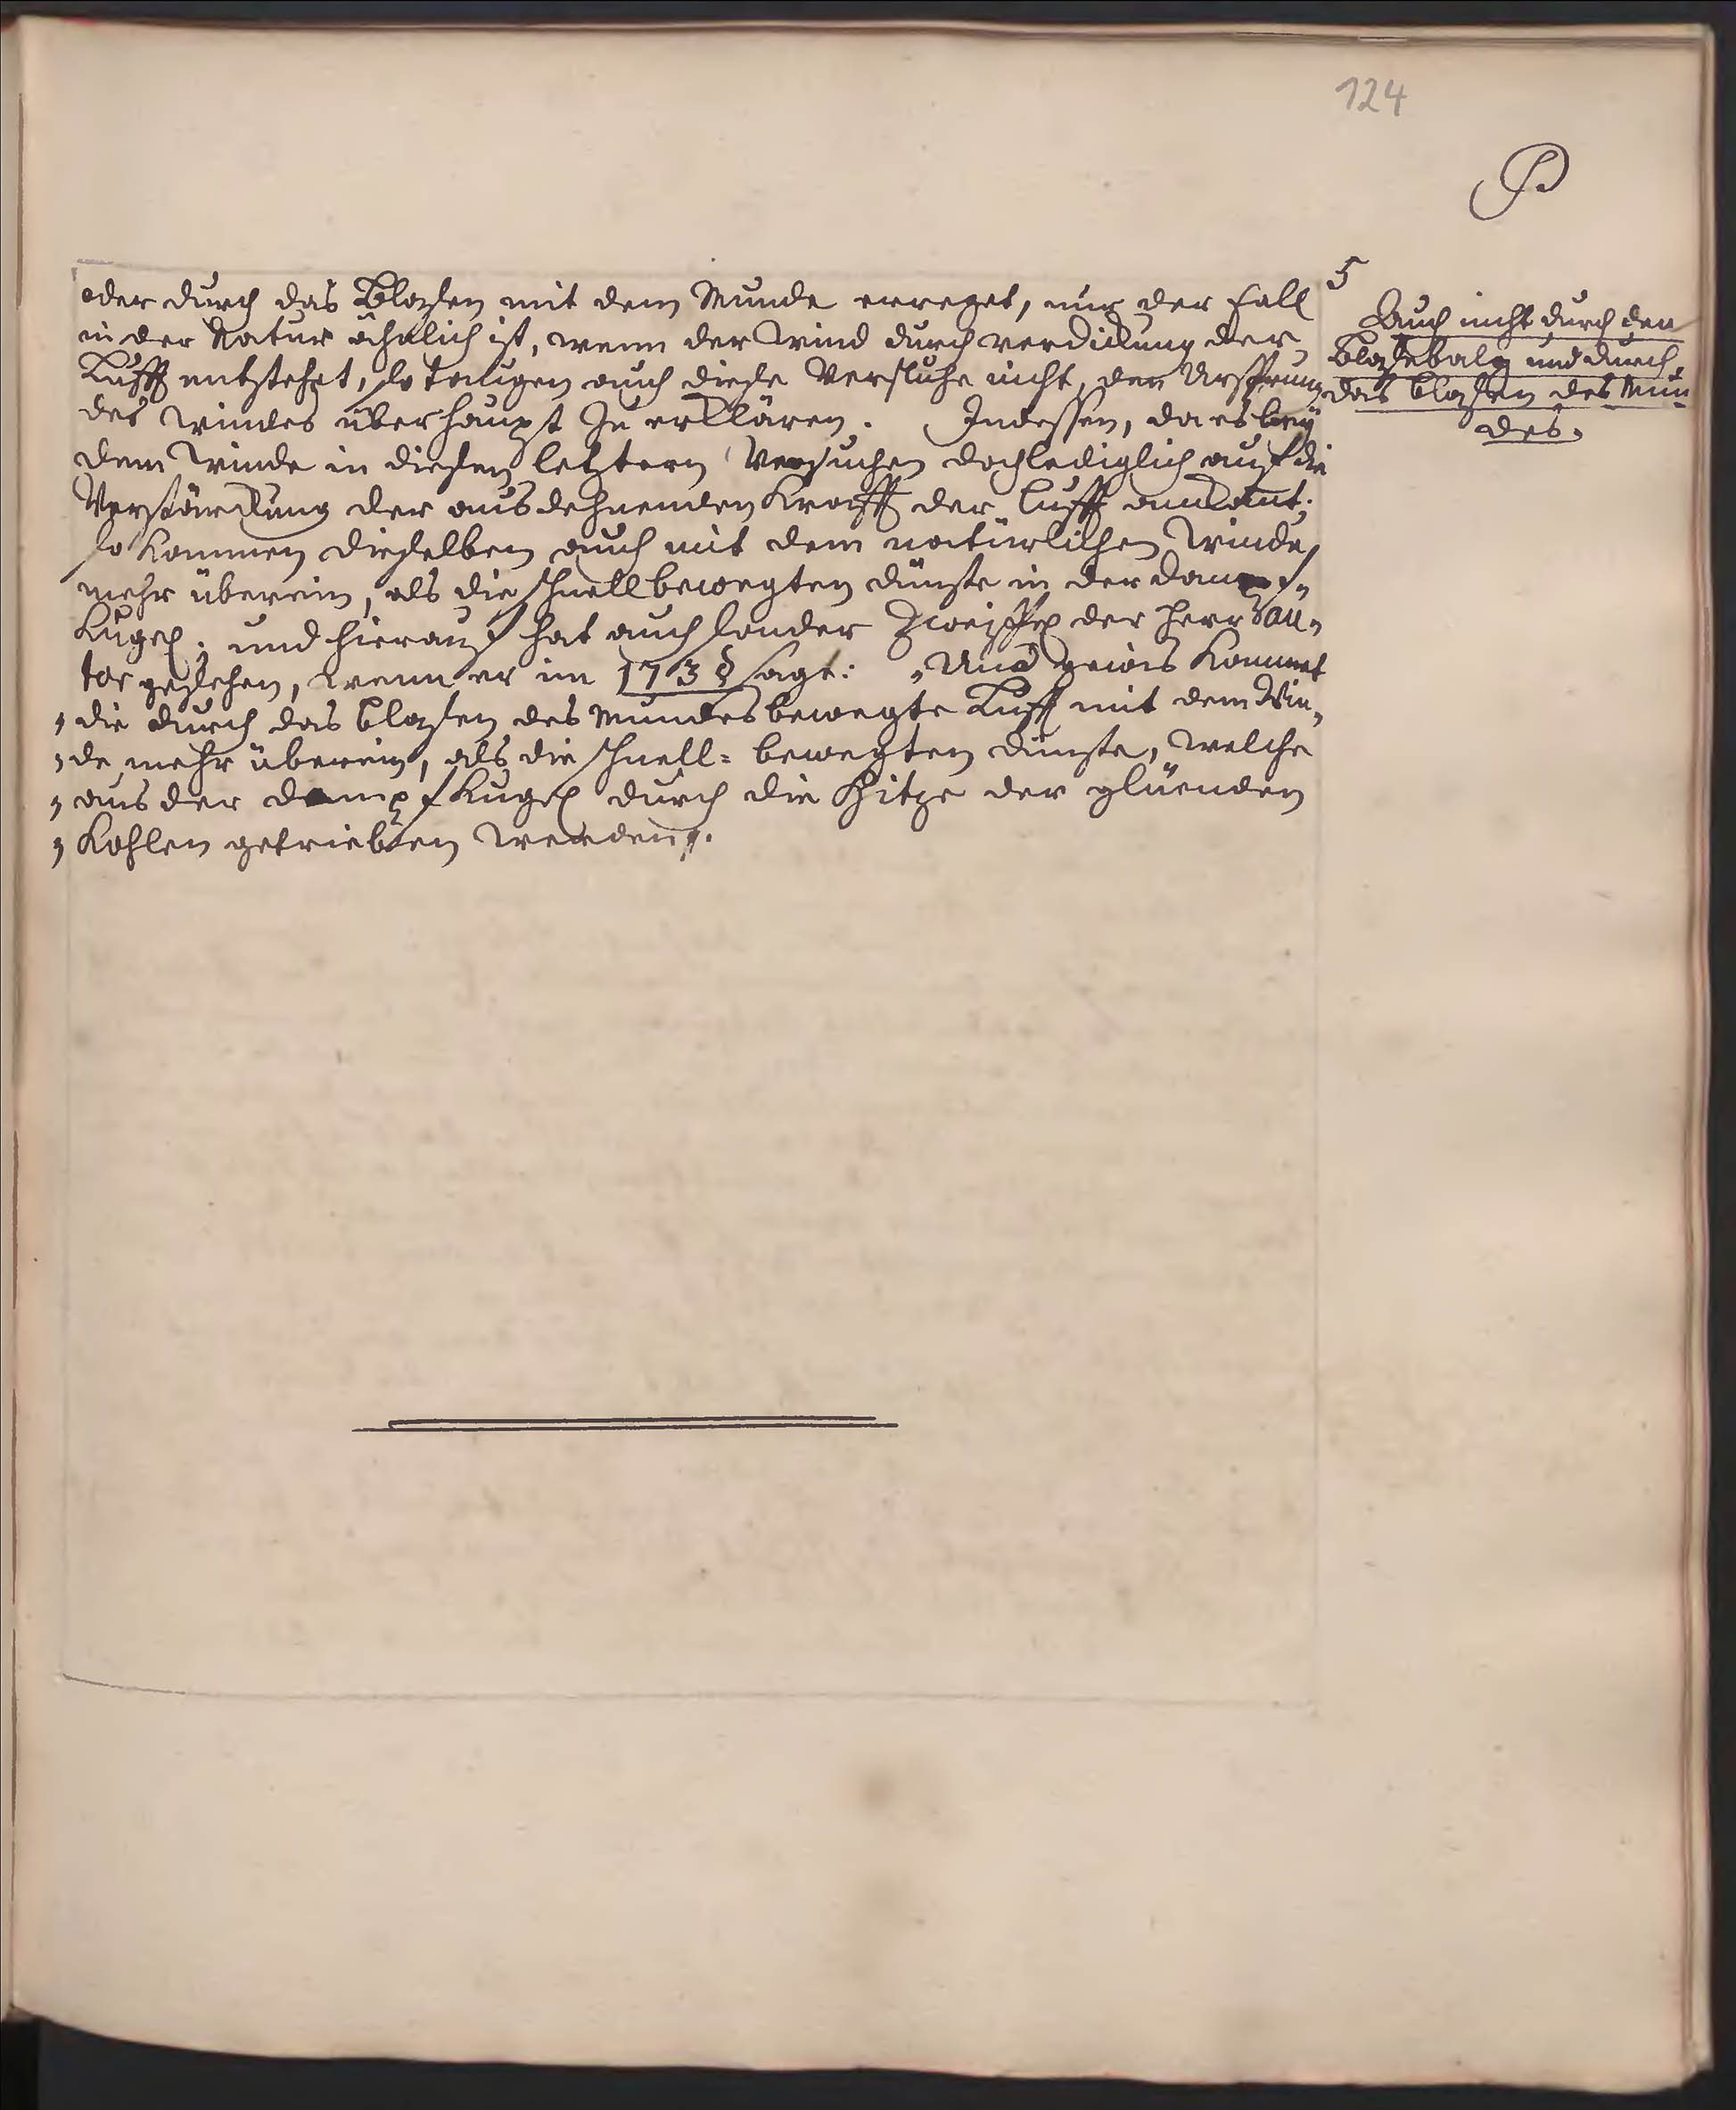 124
P
oder durch das Blasen mit dem Munde erreget, nur der Fall
in der Natur ähnlich ist, wenn der Wind durch verdickung der
Lufft entstehet, so taugen auch diese Versuche nicht, den Ursprung
des Windes überhaupt zu erklären. Indessen, da es bey
dem Winde in diesen letztern Versuchen doch lediglich auf die
Verstärckung der ausdehnenden Krafft der Lufft ankömt;
so kommen dieselben auch mit dem natürlichen Winde
mehr überein, als die schnell bewegten dünste in der Dampf-
Kugel: und hierauf hat auch sonder Zweiffel der Herr Au-
tor gesehen, wenn er im 173 § sagt: „Und gewis kommet
„die durch das Blasen des Mundes bewegte Lufft mit dem Win-
„de mehr überein, als die schnell-bewegten dünste, welche
„aus der Dampf Kugel durch die Hitze der glüenden
„Kohlen getrieben werden„.
5
Auch nicht durch den
Blasebalg und durch
das blasen des Mun-
des.